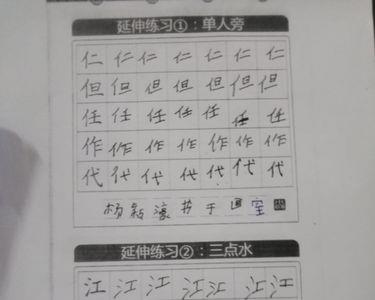 延伸练习①：单人旁
仁 仁 仁 仁 仁 仁 仁
但 但 但 但 但 但 但
任 任 任 任 任 任 任
作 作 作 作 作 作 作
代 代 代 代 代 代 代
杨 于
延伸练习②：三点水
江 江 江 江 江 江 江